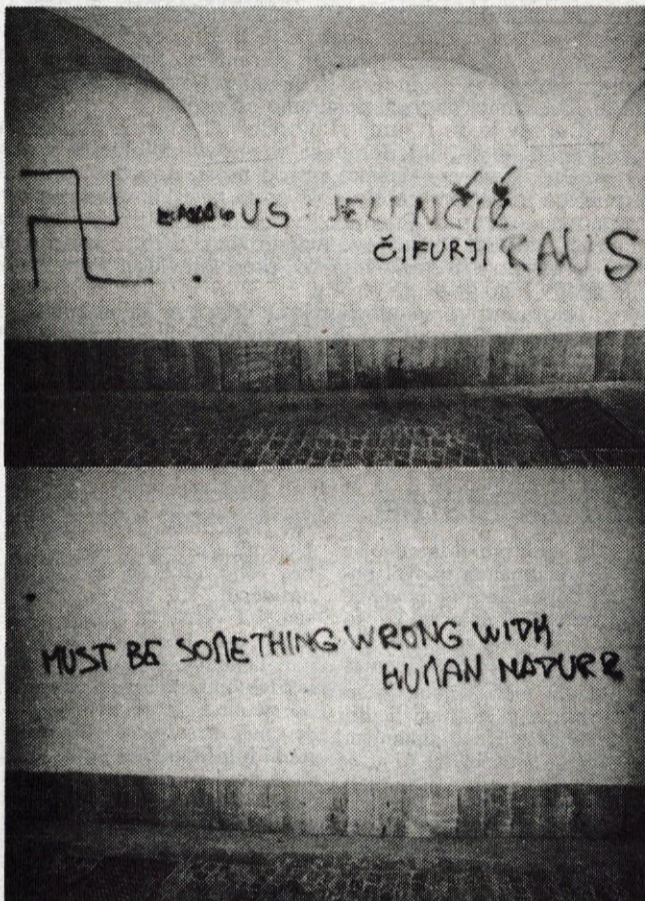 US : JELINČIČ
ČIFURJI RAUS
MUST BE SOMETHING WRONG WITH
HUMAN NATURE